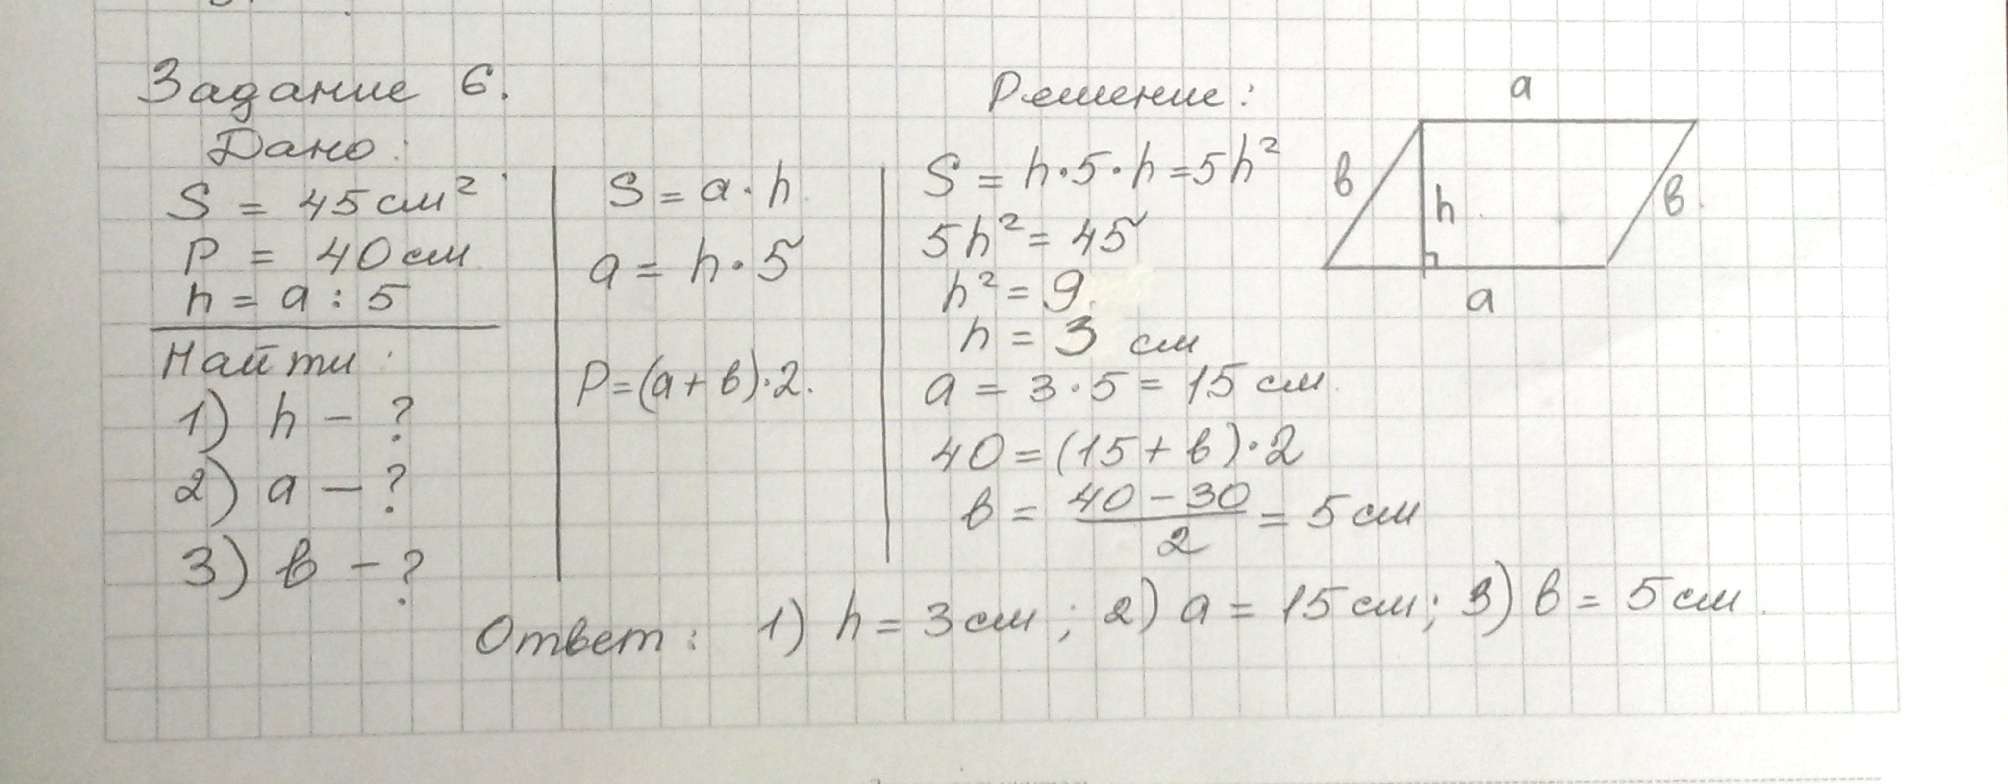 Задание 6.
Дано:
S = 45 см²
P = 40 см
h = a : 5
Найти:
1) h - ?
2) a - ?
3) в - ?
S = a · h
a = h · 5
P = (a + в) · 2.
Решение:
S = h · 5 · h = 5h²
5h² = 45
h² = 9.
h = 3 см
a = 3 · 5 = 15 см.
40 = (15 + в) · 2
в = (40 - 30)/2 = 5 см
a
в h в
a
Ответ: 1) h = 3 см; 2) a = 15 см; 3) в = 5 см.